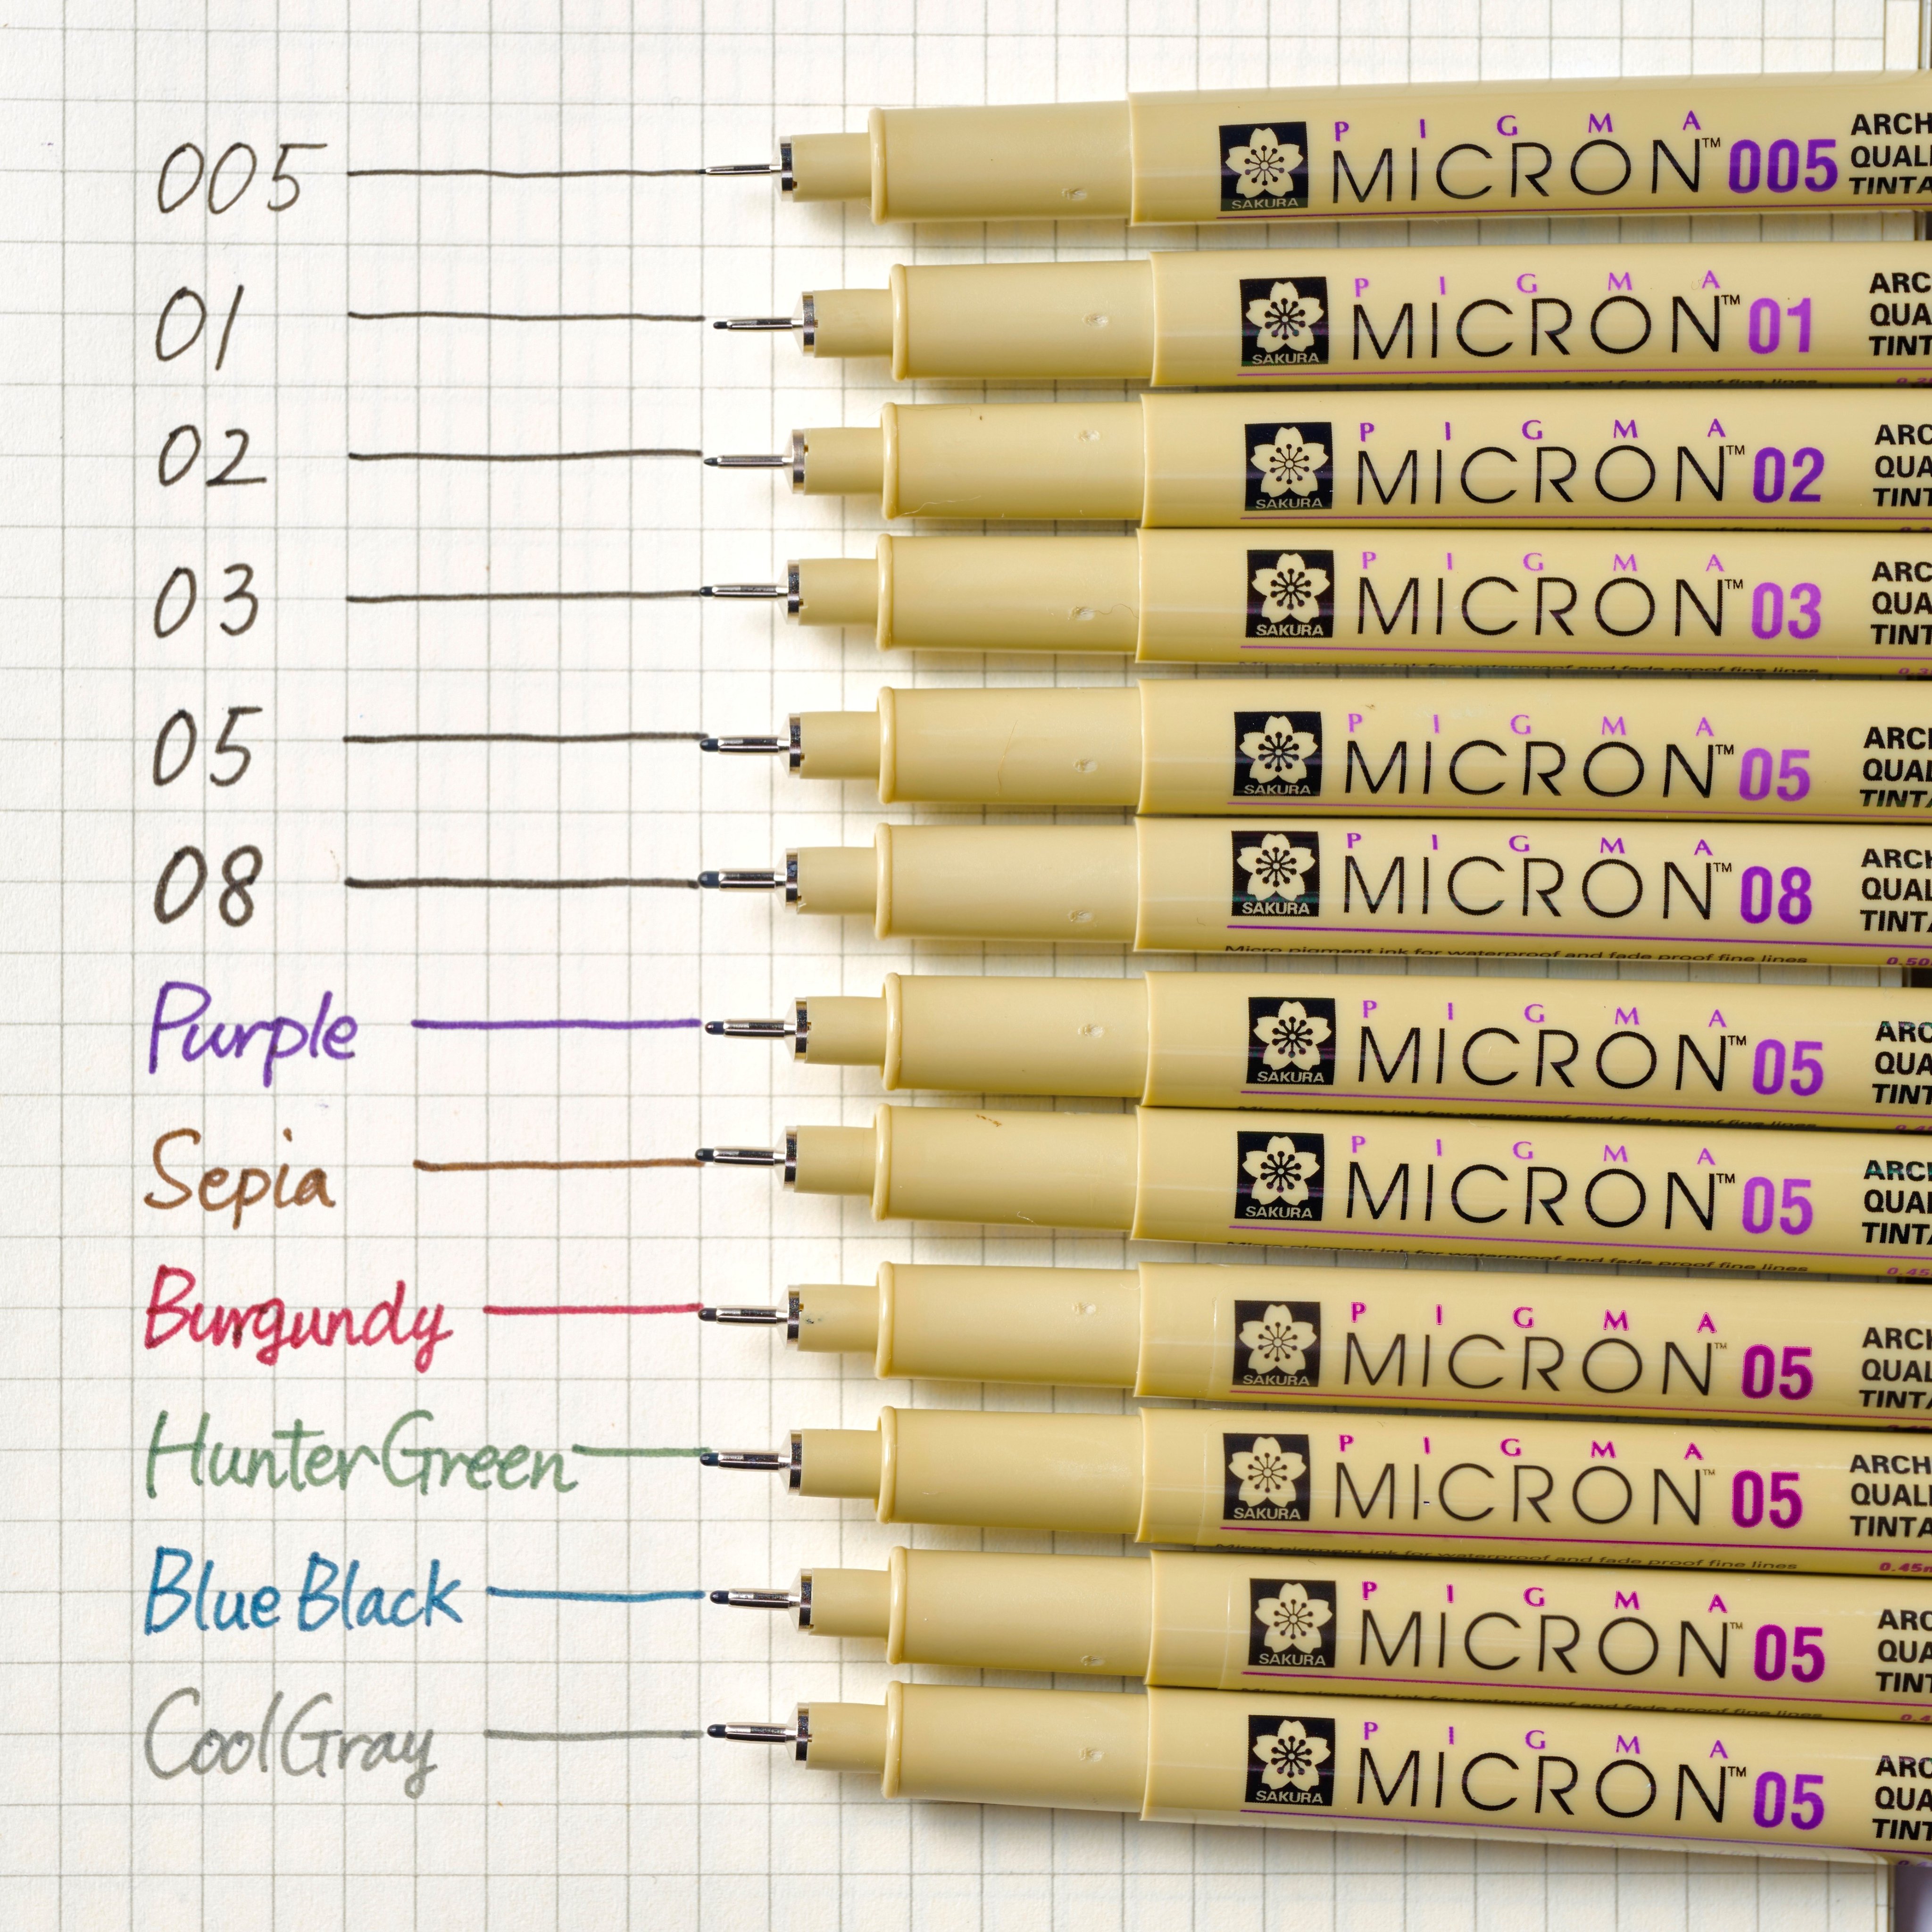 005
PIGMA
MICRON™ 005
SAKURA
ARCH
QUALI
TINTA
01
PIGMA
MICRON™ 01
SAKURA
ARC
QUA
TINT
02
PIGMA
MICRON™ 02
SAKURA
ARC
QUA
TINT
03
PIGMA
MICRON™ 03
SAKURA
ARC
QUA
TINT
Micro pigment ink for waterproof and fade proof fine lines
05
PIGMA
MICRON™ 05
SAKURA
ARCH
QUAL
TINTA
08
PIGMA
MICRON™ 08
SAKURA
ARCH
QUAL
TINTA
Micro pigment ink for waterproof and fade proof fine lines 0.50
Purple
PIGMA
MICRON™ 05
SAKURA
ARC
QUA
TINT
Sepia
PIGMA
MICRON™ 05
SAKURA
ARCH
QUAL
TINTA
Micro pigment ink for waterproof and fade proof fine lines 0.45
Burgundy
PIGMA
MICRON™ 05
SAKURA
ARCH
QUAL
TINTA
Hunter Green
PIGMA
MICRON™ 05
SAKURA
ARCH
QUALI
TINTA
Micro pigment ink for waterproof and fade proof fine lines 0.45m
Blue Black
PIGMA
MICRON™ 05
SAKURA
ARC
QUA
TINT
Micro pigment ink for waterproof and fade proof fine lines
Cool Gray
PIGMA
MICRON™ 05
SAKURA
ARC
QUA
TINT